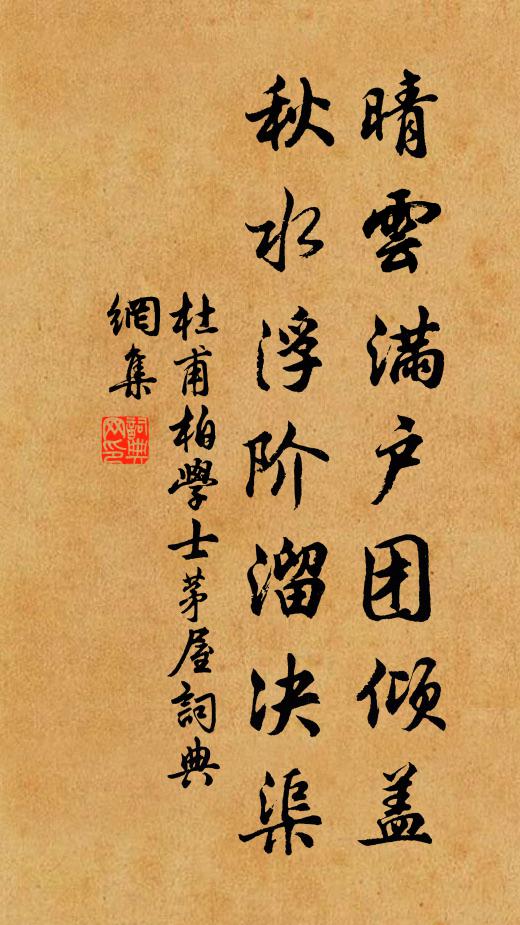 晴雲满户团倾盖
秋水浮阶溜决渠
杜甫柏學士茅屋詞典
網集
詞典
网印